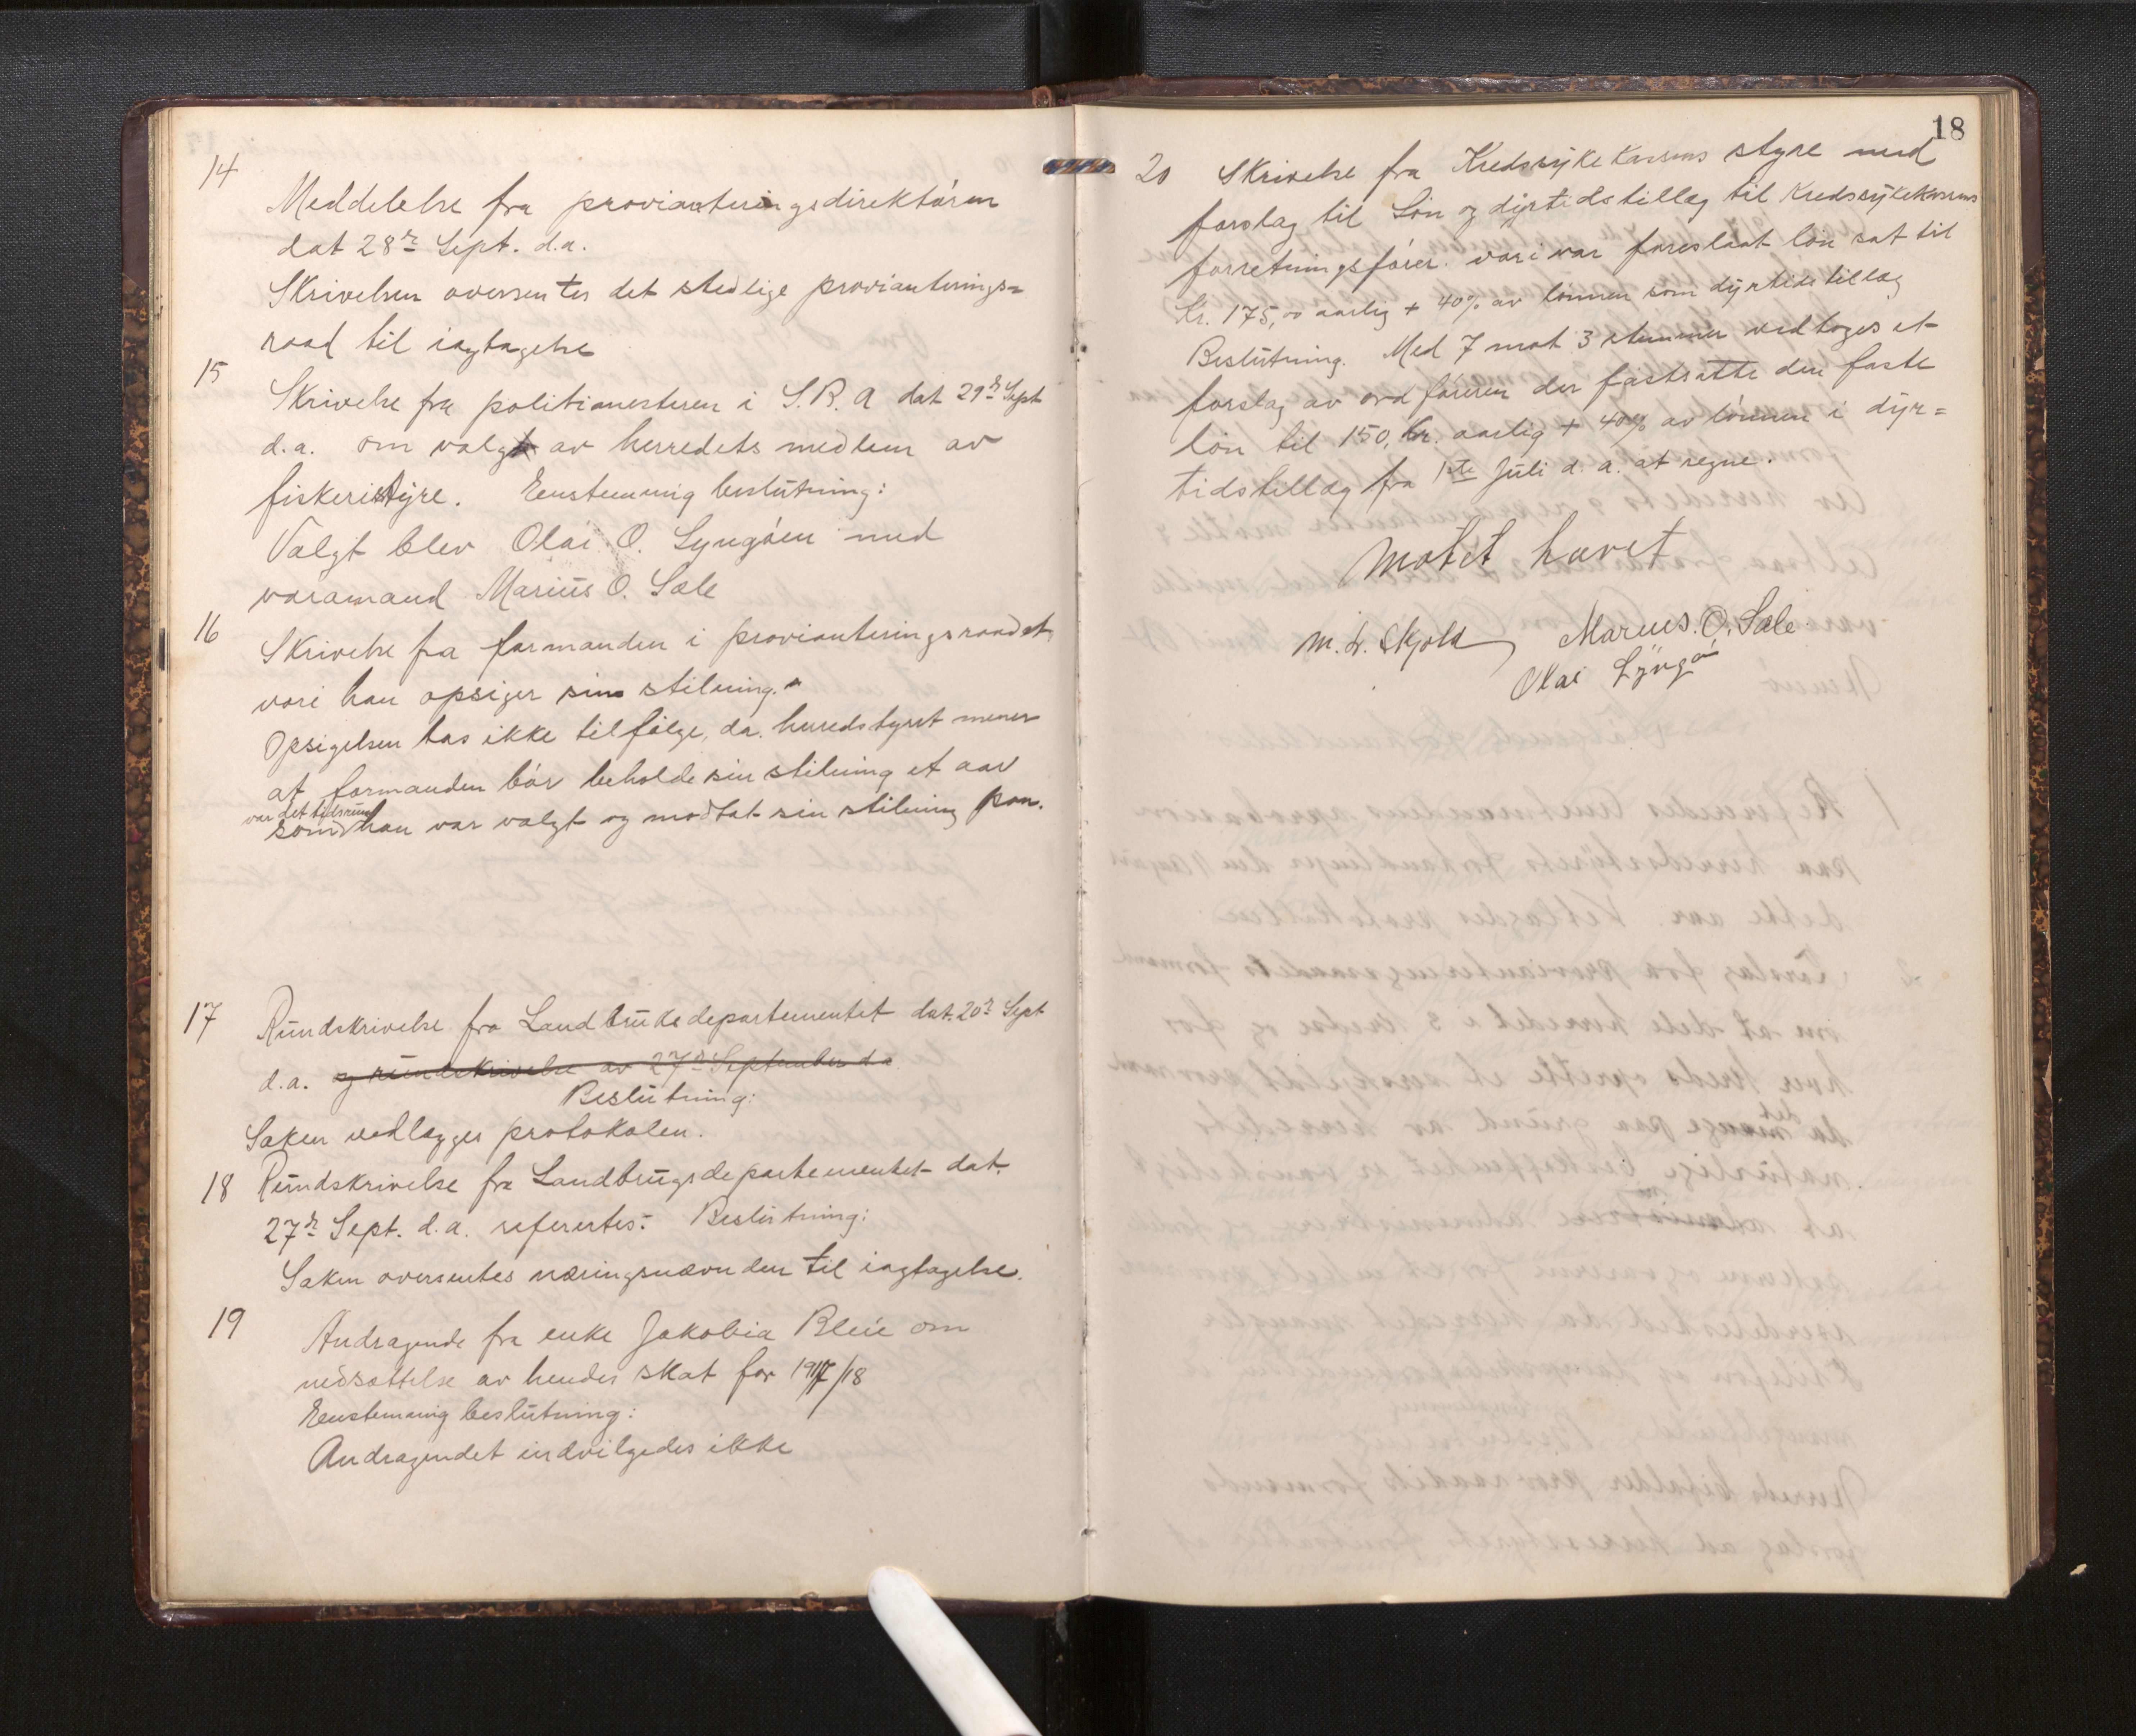 14
Meddelelse fra provianteringsdirektören
dat 28de Sept. d.a.
Skrivelsen oversentes det stedlige provianterings=
raad til iagtagelse
15
Skrivelse fra politimesteren i S.B.A dat 29de Sept
d.a. om valg av herredets medlem av
fiskeristyre. Eenstemmig beslutning:
Valgt blev Olai O. Lyngöen med
varamand Marius O. Sæle
16
Skrivelse fra formanden i provianteringsraadet,
vori han opsiger sin stilning.
Opsigelsen tas ikke tilfölge, da herredstyret mener
at formanden bör beholde sin stilning et aar
var det tidsrum
som han var valgt og modtat sin stilning paa.
17 Rundskrivelse fra Landbruksdepartementet dat. 20de Sept
d.a. og rundskrivelse av 27de September da
Beslutning:
Saken vedlægges protokolen.
18 Rundskrivelse fra Landbrugsdepartementet dat.
27de Sept. d.a. refertes: Beslutning:
Saken oversentes næringsnævnden til iagtagelse.
19
Andragende fra enke Jakobia Bleie om
nedsættelse av hendes skat for 1917/18
Eenstemmig beslutning:
Andragendet indvilgedes ikke
18
20 Skrivelse fra Kredssykekassens styre med
forslag til Lön og dyrtidstillæg til Kredssykekassens
forretningsförer. vori var foreslaat lön sat til
Kr. 175,00 aarlig + 40% av lönnen som dyrtidstillæg
Beslutning. Med 7 mot 3 stemmer vedtoges et
forslag av ordföreren der fastsatte den faste
lön til 150, kr. aarlig + 40% av lönnen i dyr=
tidstillæg fra 1ste Juli d.a. at regne.
Mötet hævet
M. L. Skjold Marius. O. Sæle
Olai Lyngö